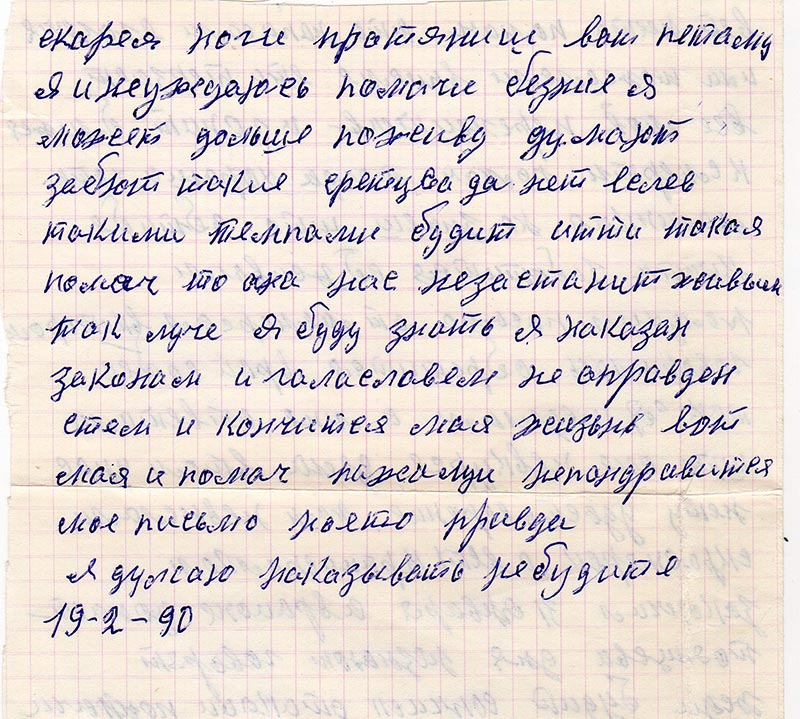 скарея ноги пратяниш вот петаму
я и неуждаюсь помачи безние я
может дольше поживу думают
заебют такие сретцва да нет велев
такими темпами будит итти такая
помач то ана нас незастанит живыми
так луче я буду знать я наказан
законам и галасловем не оправден
стем и кончится мая жизнь вот
мая и помач пажалуи непондравится
мое письмо ноето правда
я думаю наказывать небудите
19-2-90